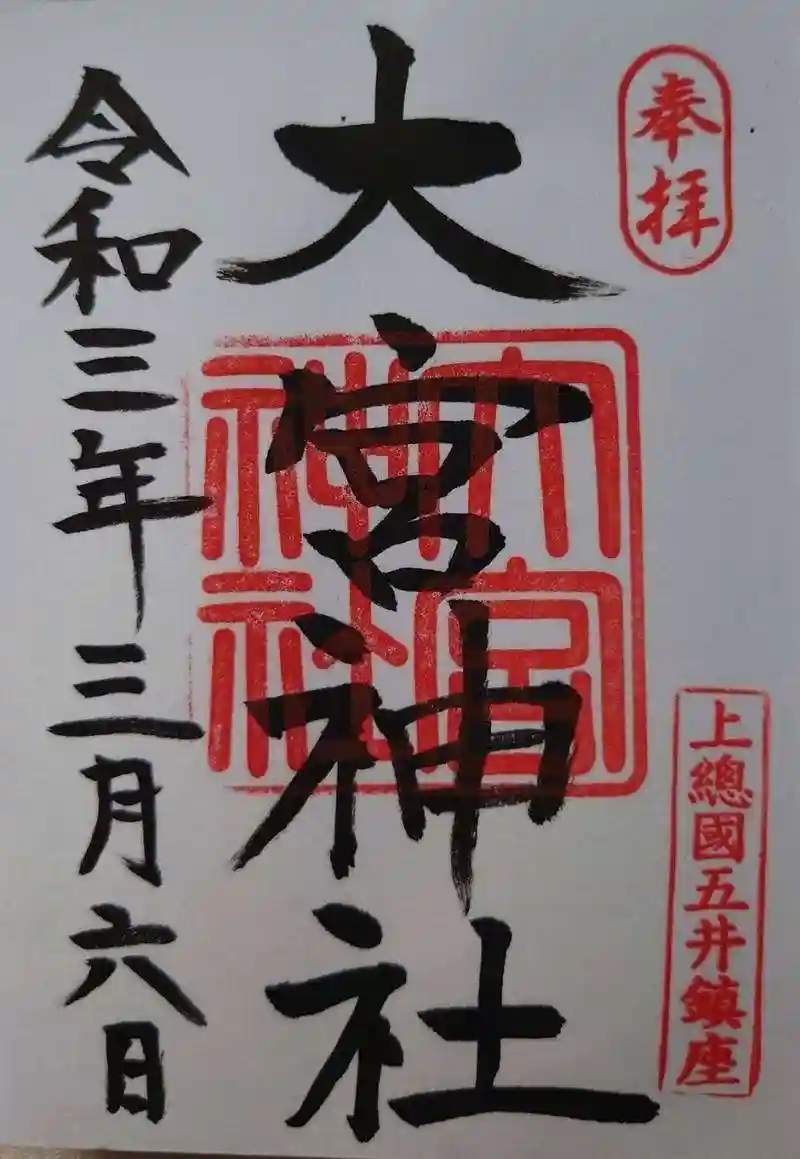 奉拝
上總國五井鎮座
大宮神社
大宮神社
令和三年三月六日